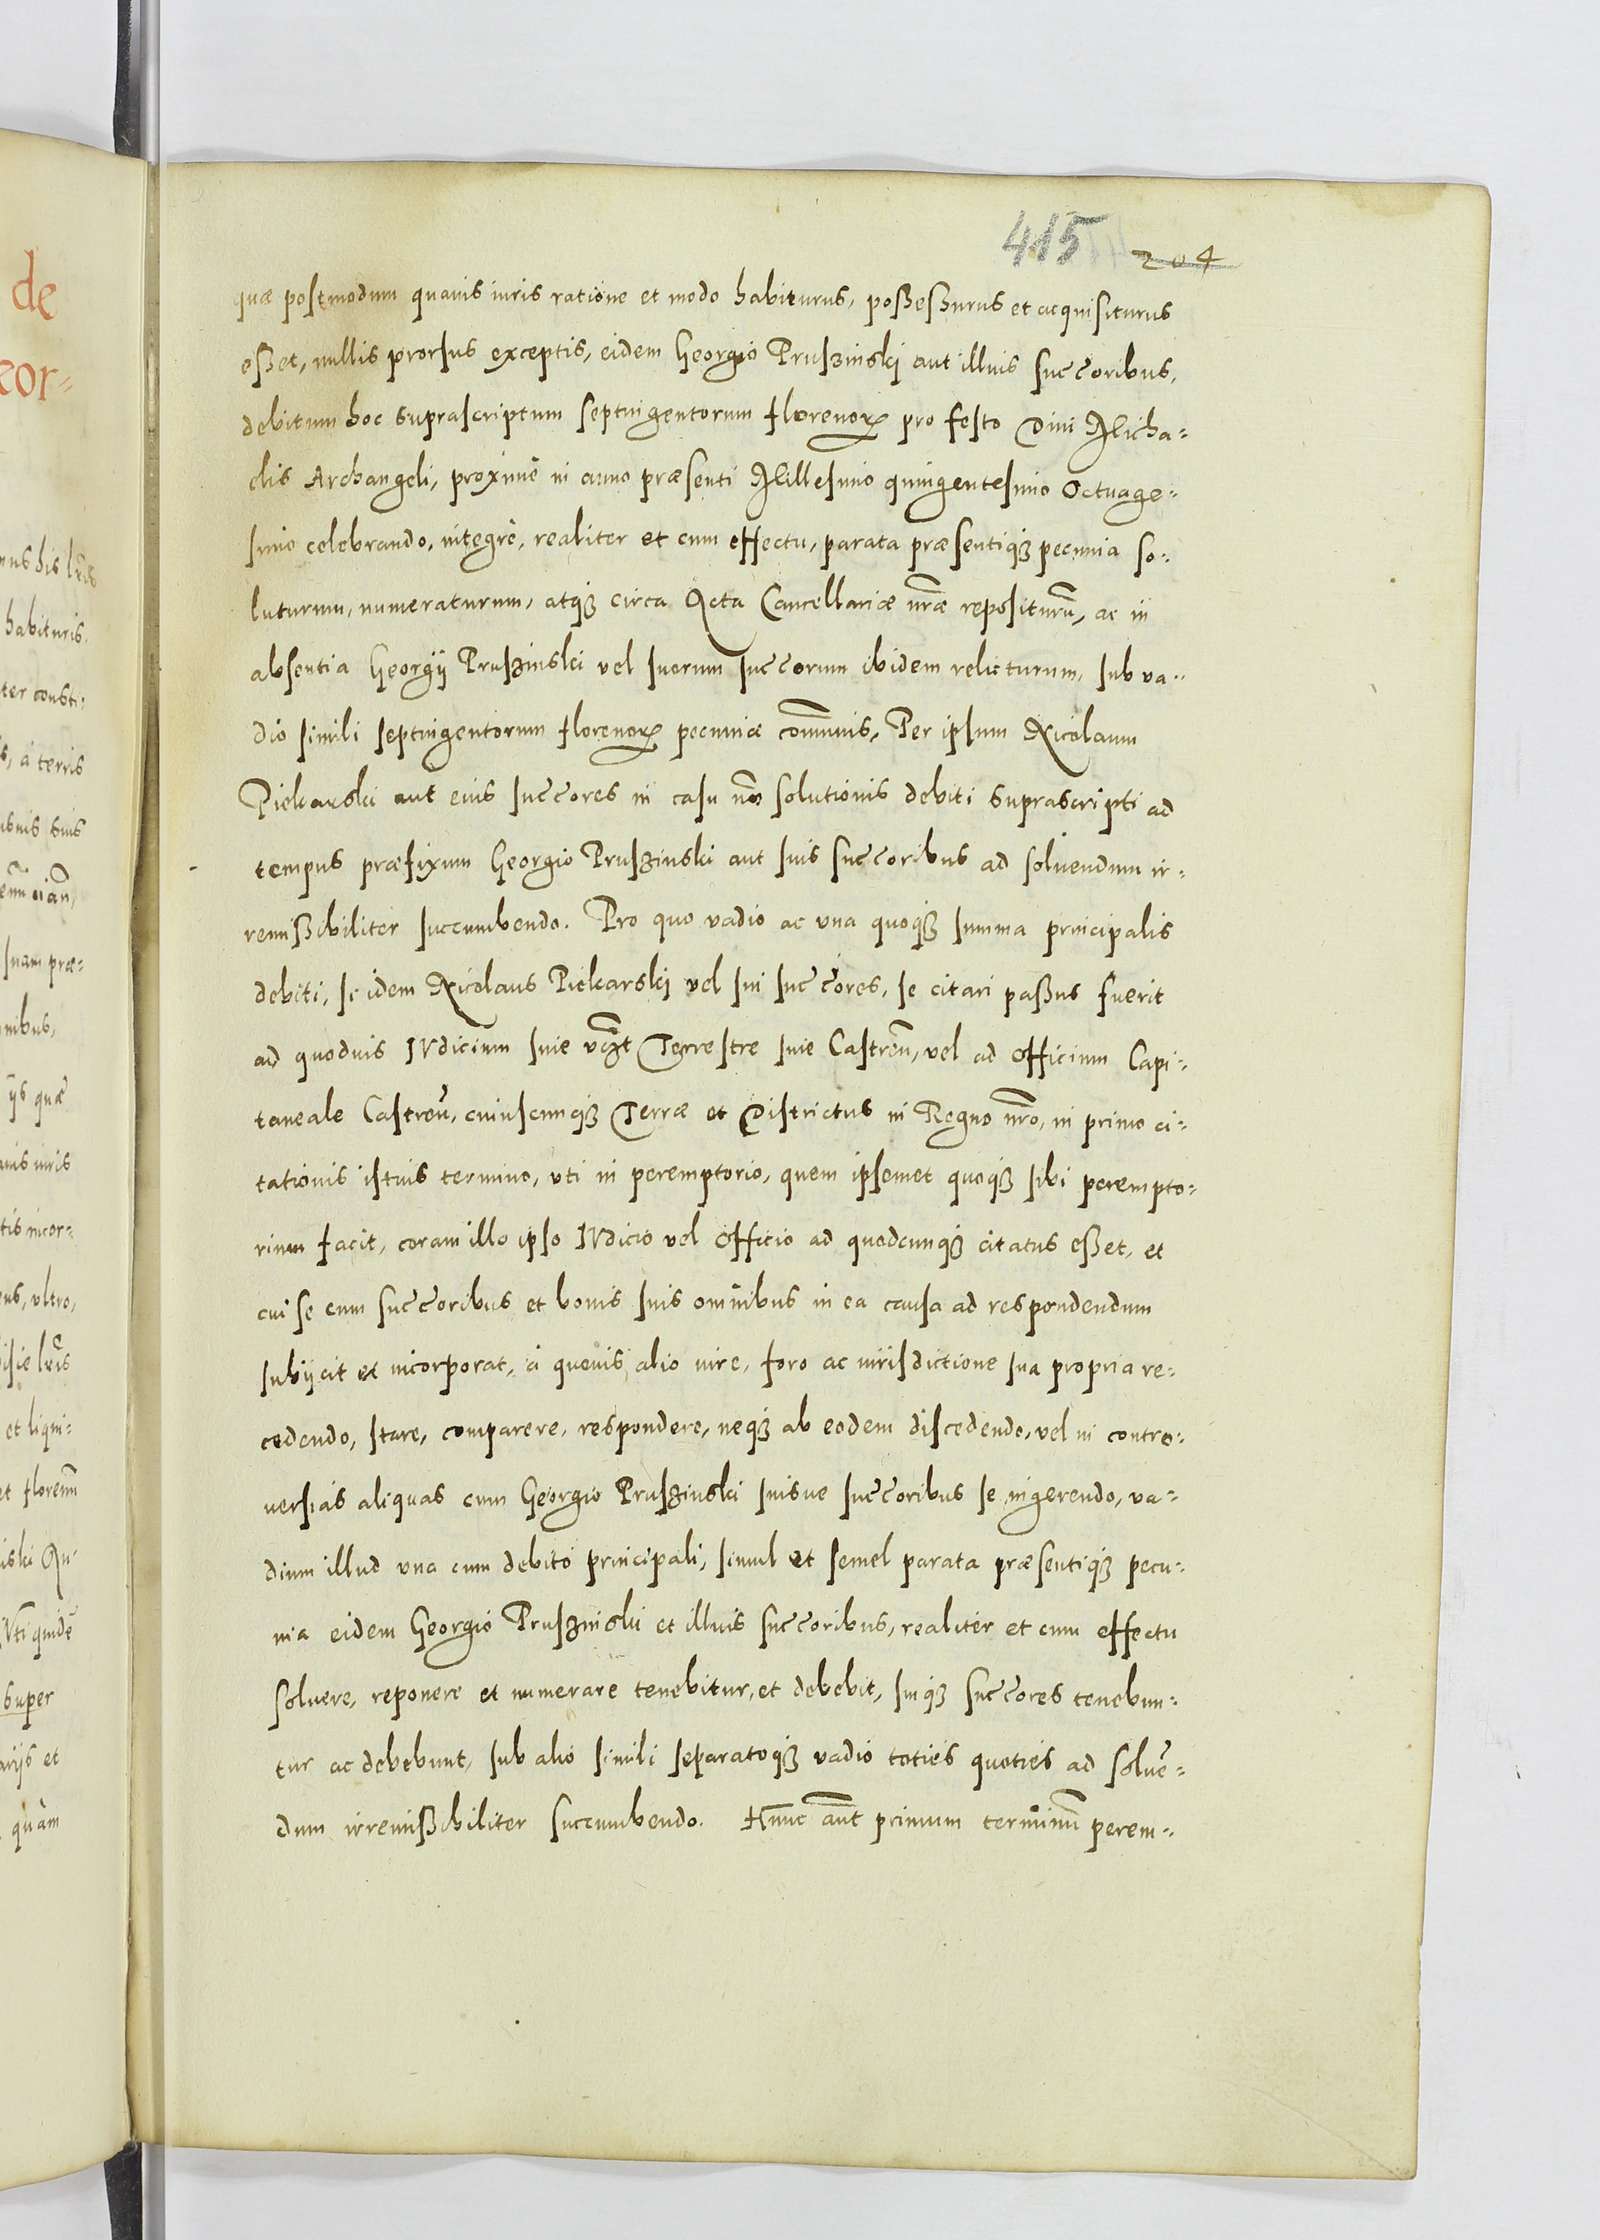 415 204
quæ postmodum quauis iuris ratione et modo habiturus, poßeßurus et acquisiturus
eßet, nullis prorsus exceptis, eidem Georgio Pruszinski aut illius succoribus,
debitum hoc suprascriptum septuigentorum florenorꝝ pro festo Diui Micha-
elis Archangeli, proximè in anno præsenti Millesimo quingentesimo Octuage-
simo celebrando, integrè, realiter et cum effectu, parata præsentiq́ꝫ pecunia so-
luturum, numeraturum, atq́ꝫ circa Acta Cancellariæ nr̃æ repositurũ, ac in
absentia Georgij Pruszinski vel suorum succorum ibidem relicturum, sub va-
dio simili septuigentorum florenorꝝ pecuniæ com̃unis, Per ipsum Nicolaum
Piekarski aut eius succores in casu nõ solutionis debiti suprascripti ad
tempus præfixum Georgio Pruszinski aut suis succoribus ad soluendum ir-
remißibiliter succumbendo. Pro quo vadio ac vna quoq́ꝫ summa principalis
debiti, si idem Nicolaus Piekarski vel sui succores, se citari paßus fuerit
ad quoduis Iudicium siue vc̃zt Terrestre siue Castreñ, vel ad officium Capi-
taneale Castreñ, cuiuscunq́ꝫ Terræ et Districtus in Regno nr̃o, in primo ci-
tationis istius termino, vti in peremptorio, quem ipsemet quoq́ꝫ sibi perempto-
rium facit, coram illo ipso Iudicio vel officio ad quodcunq́ꝫ citatus eßet, et
cui se cum succoribus et bonis suis omnibus in ea causa ad respondendum
subijcit et incorporat, à quouis alio iure, foro ac iurisdictione sua propria re-
cedendo, stare, comparere, respondere, neq́ꝫ ab eodem discedendo, vel in contro-
uersias aliquas cum Georgio Pruszinski suisue succoribus se ingerendo, va-
dium illud vna cum debito principali, simul et semel parata præsentiq́ꝫ pecu-
nia eidem Georgio Pruszinski et illius succoribus, realiter et cum effectu
soluere, reponere et numerare tenebitur, et debebit, suiq́ꝫ succores tenebun-
tur ac debebunt, sub alio simili separatoq́ꝫ vadio toties quoties ad soluẽ-
dum irremißibiliter succumbendo. Hunc aũt primum terminũ perem-